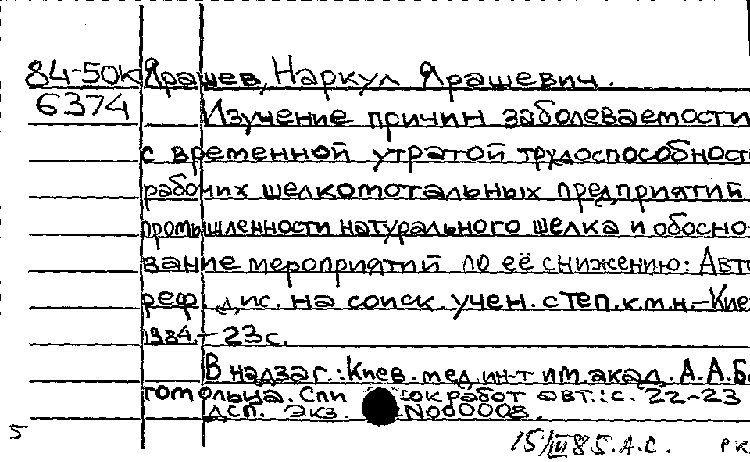 84-50к Ярашев, Наркул Ярашевич.
6374 Изучение причин заболеваемости
с временной утратой трудоспособност
рабочих шелкомотальных предприятий
промышленности натурального шелка и обосно-
вание мероприятий по её снижению: Авто
реф. дис. на соиск. учен. степ. к.м.н.-Кие
1984.- 23 с.
В надзаг.: Киев. мед. ин-т им. акад. А.А.Бо
гомольца. Спи сок работ авт.: с. 22-23
ДСП. Экз. №000008.
5
15/III 85. А.С. РК